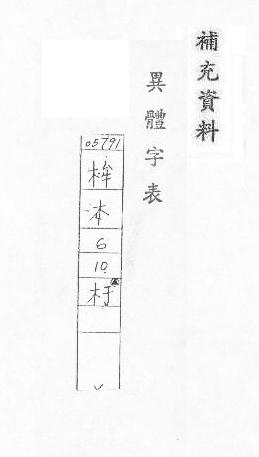 補充資料
異體字表
05791
桙
6
10
杅